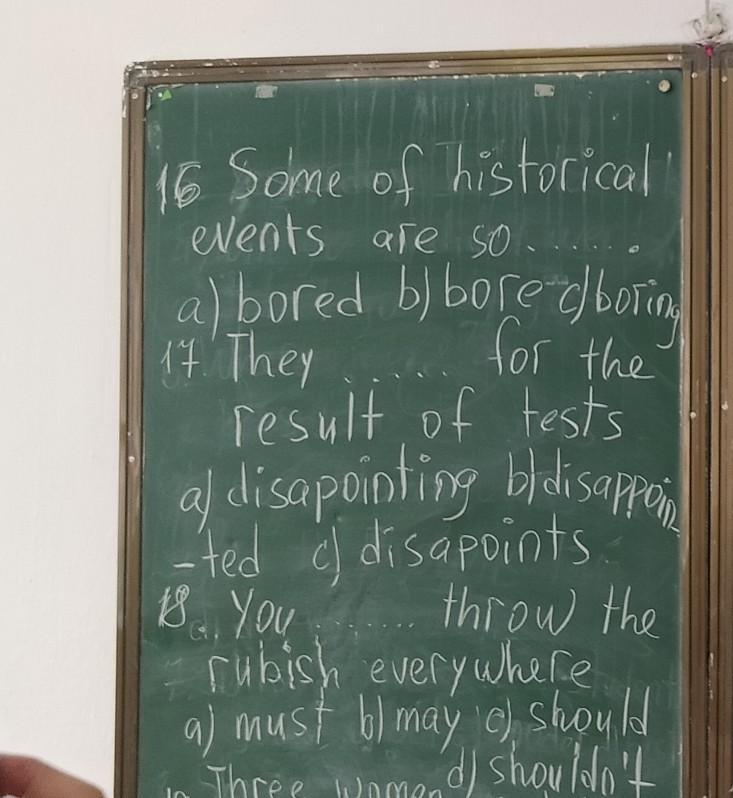 16 Some of historical
events are so.......
a) bored b) bore c) boring
17. They ...... for the
result of tests
a) disapointing b) disappoin
-ted c) disapoints.
18. You ....... throw the
rubish everywhere
a) must b) may c) should
d) shouldn't
Three women